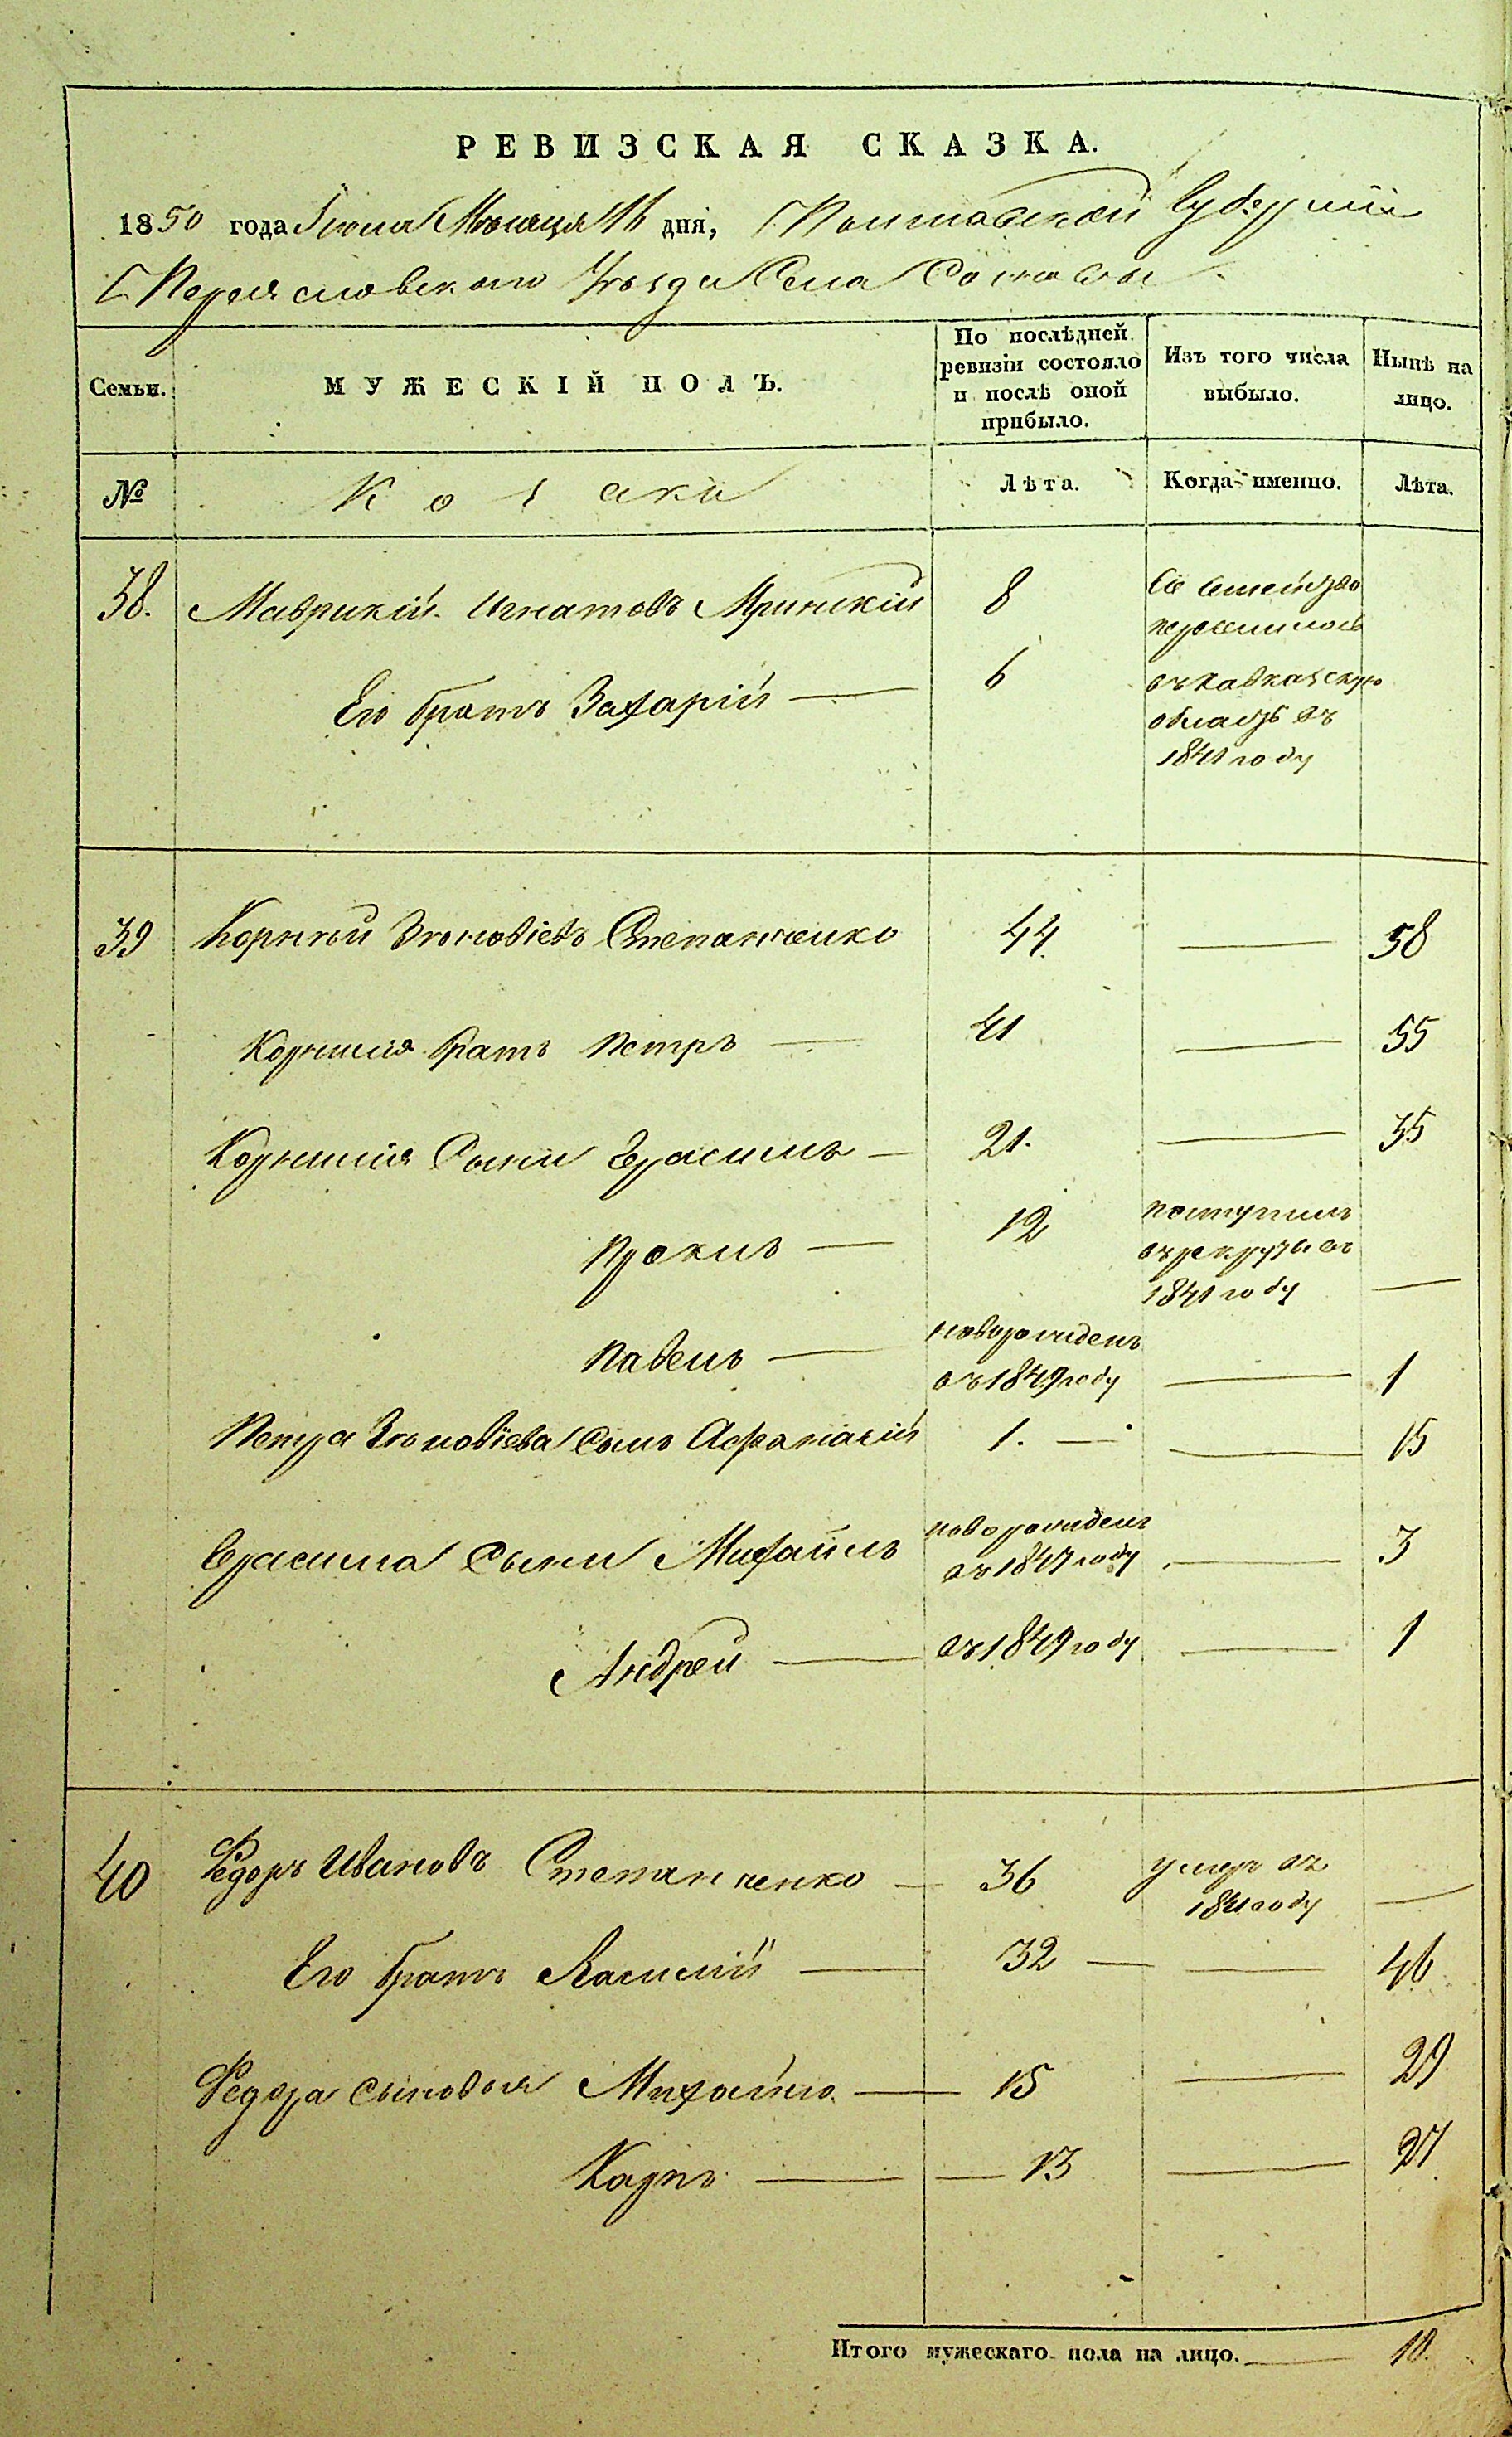 РЕВИЗСКАЯ СКАЗКА.
1850 года Іюня Мѣсяца 16 дня, Полтавской Губерніи
Переясловскаго Уѣзда Села Сосновы
Семьи.
МУЖЕСКІЙ ПОЛЪ.
По послѣдней ревизіи состояло и послѣ оной прибыло.
Изъ того числа выбыло.
Нынѣ на лицо.
№
Козаки
Лѣта.
Когда именно.
Лѣта.
38. Маврикій Игнатовъ 8
Сіе семейство
переселилось
Его братъ Захарій — 6
въ кавказскую
область въ
1841 году
39 Корнѣй Зѣновіевъ Степанченко 44. — 58
Корнилія братъ Петръ — 41 — 55
Корнилія Сыни Герасимъ — 21. — 35
Прокипъ — 12
поступилъ
въ рекруты въ
1841 году —
Павелъ —
новорожденъ
въ 1849 году — 1
Петра Зѣновіева сынъ Афанасій 1. — — 15
Герасима Сыни Михаилъ
новорожденъ
въ 1847 году — 3
Андрей — въ 1849 году — 1
40 Федоръ Ивановъ Степанченко — 36
умеръ въ
1841 году —
Его братъ Василій — 32 — — 46
Федора сыновья Михайло — 15 — 29
Карпъ — — 13 — 27
Итого мужескаго пола на лицо. — 10.